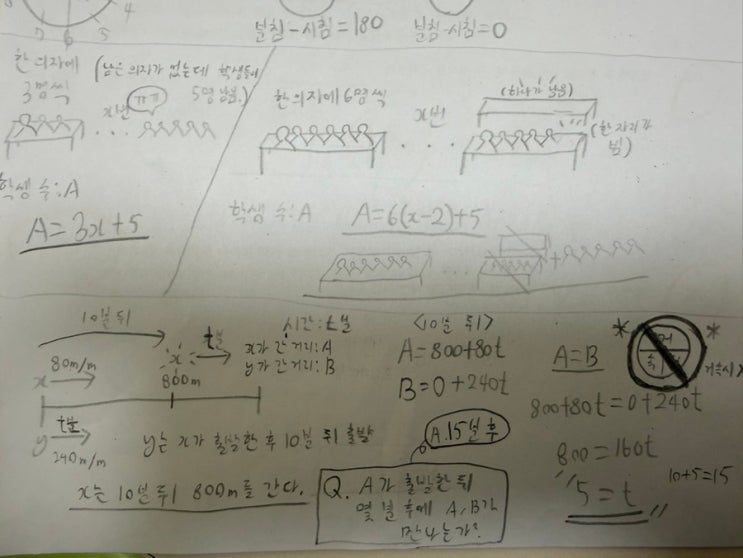 7 6 5 4
분침-시침=180
분침-시침=0
한 의자에
3명씩
(남은 의자가 없는데 학생들이
5명 남음.)
x번
학생 수:A
A=3x+5
한 의자에 6명씩
x번
(하나가 남음)
(한 자리가
빔)
학생 수:A
A=6(x-2)+5
...
+
10분 뒤
x 80m/m
x
800m
t분
y t분
240m/m
시간:t분
x가 간 거리:A
y가 간 거리:B
y는 x가 출발한 후 10분 뒤 출발
x는 10분 뒤 800m를 간다.
<10분 뒤>
A=800+80t
B=0+240t
A.15분 후
Q. A가 출발한 뒤
몇 분 후에 A,B가
만나는가?
A=B
* *
거 속 시
800+80t=0+240t
800=160t
"5=t"
10+5=15